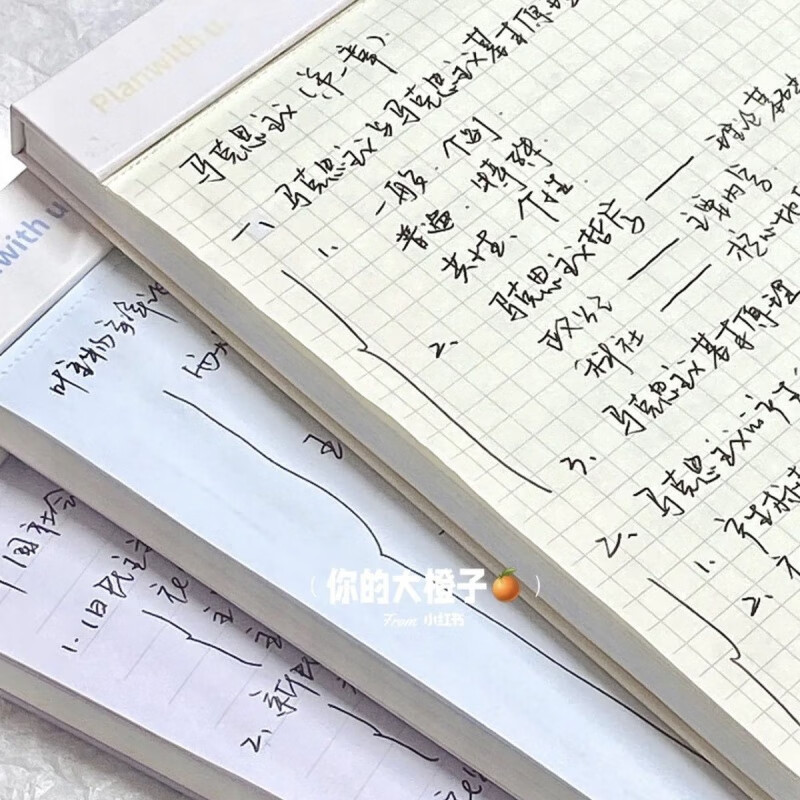 Planwith u.
马克思主义(第一章)
一、马克思主义与马克思主义基本原
1. 一般、个别
普遍、特殊
共性、个性
2. 马克思主义哲学 —— 理论基础
政经 —— 主要内容
科社 —— 核心
3. 马克思主义基本原理
二、马克思主义的产生
1. 产生
2.
with u.
唯主
中国社会
1. 旧民主主
2. 新民
(你的大橙子🍊)
From 小红书